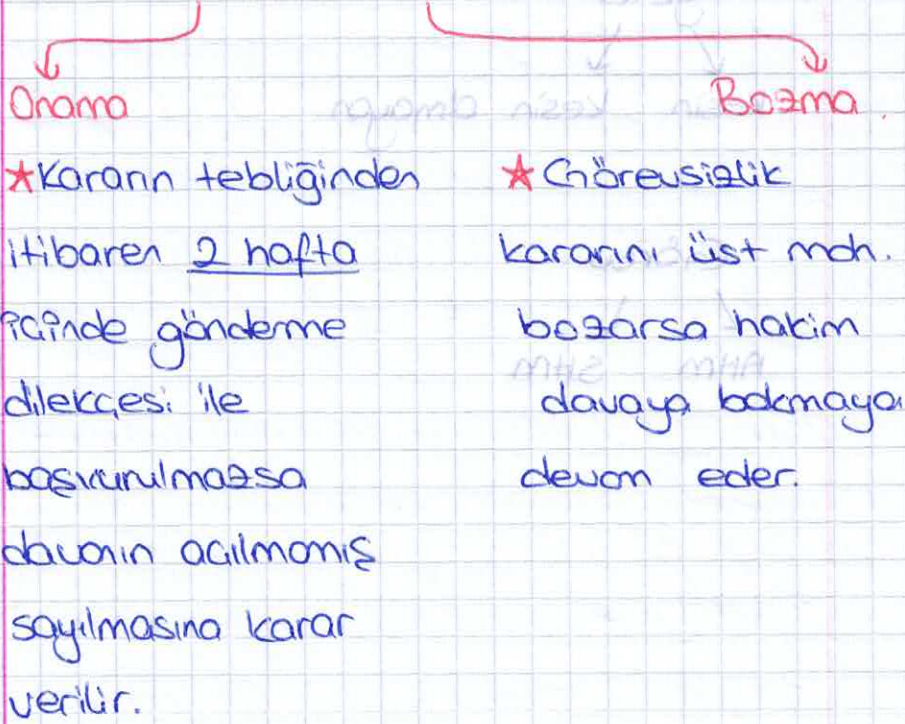 Onama
★Kararın tebliğinden
itibaren 2 hafta
içinde gönderme
dilekçesi ile
başvurulmazsa
davanın açılmamış
sayılmasına karar
verilir.
Bozma.
★Görevsizlik
kararını üst mah.
bozarsa hakim
davaya bakmaya
devam eder.